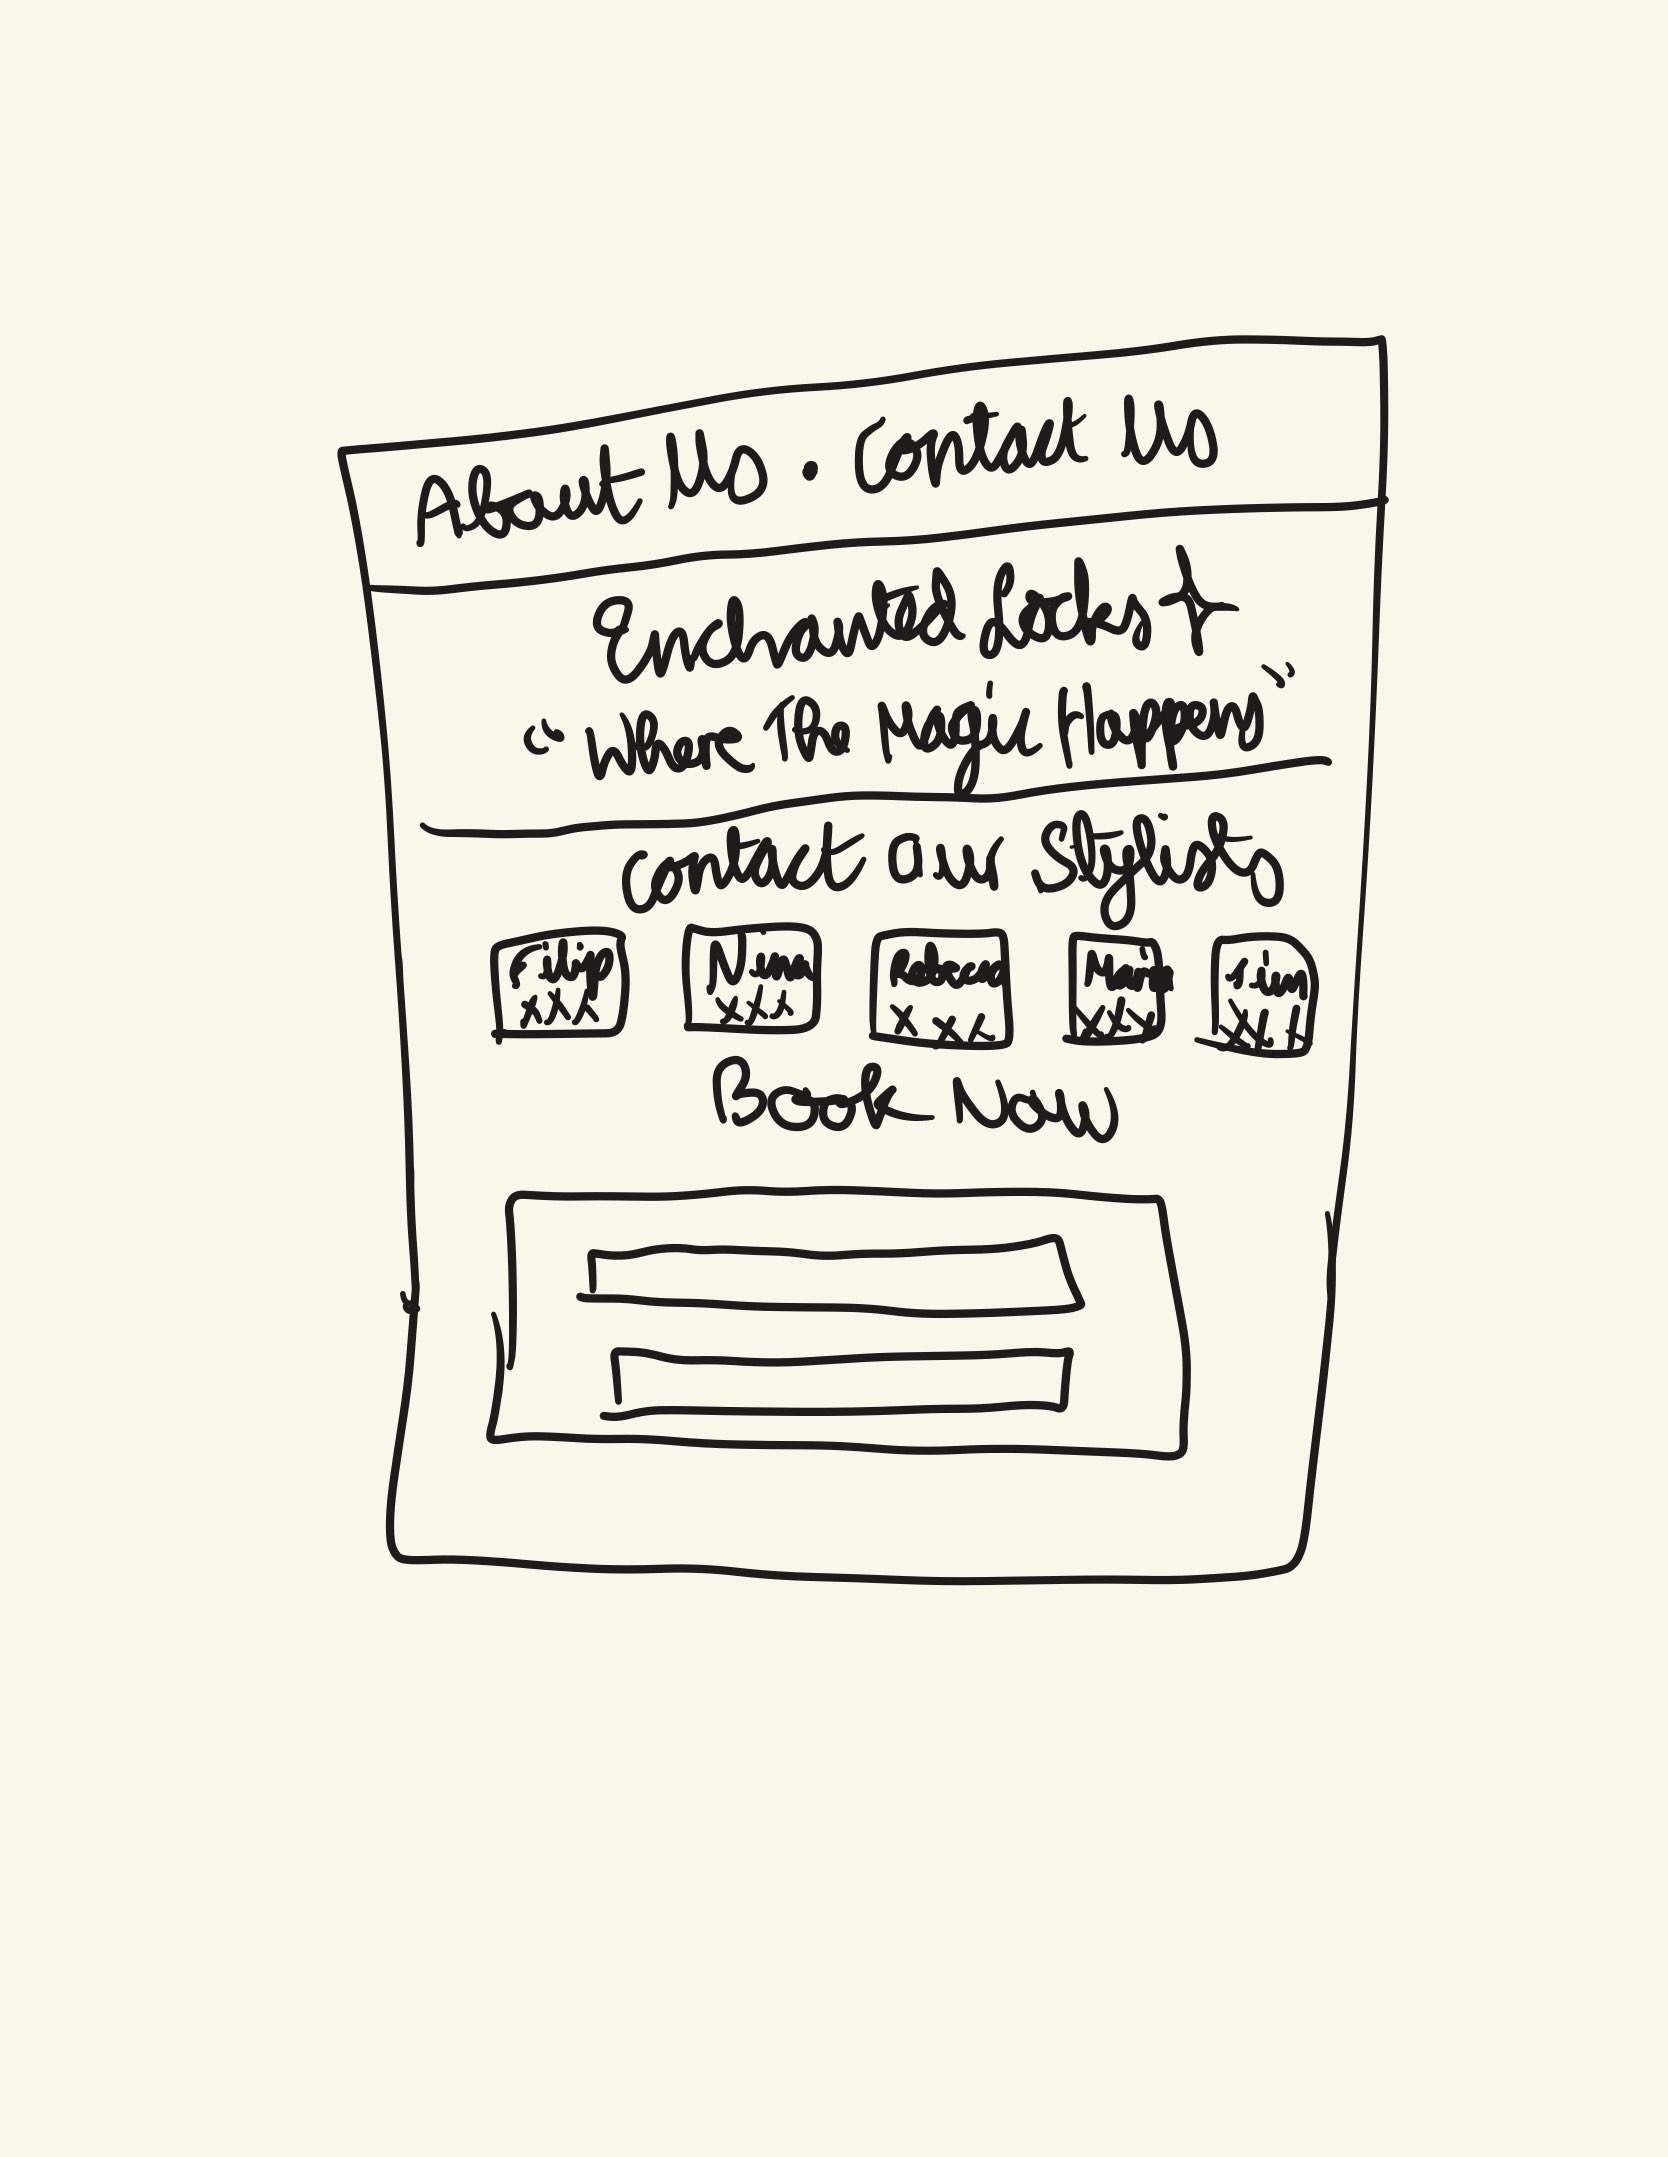 About Us · Contact Us
Enchanted Locks
"Where The Magic Happens"
Contact Our Stylists
Filip Nina Rebecca Maria
xxx xxx xxx xxx xxx
Book Now